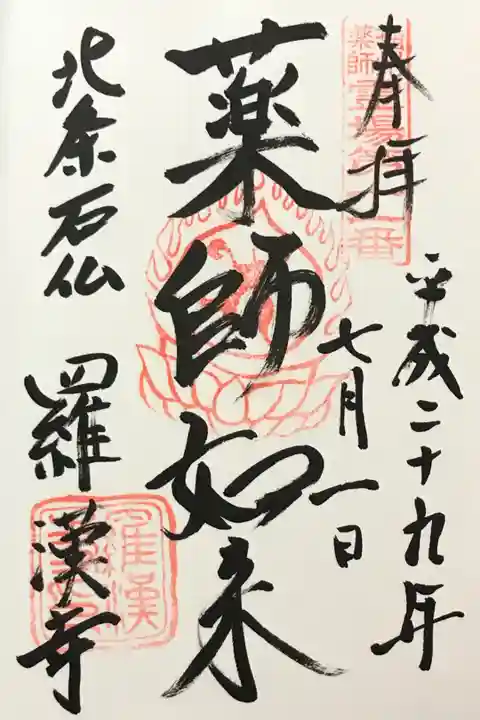 奉拝
平成二十九年
七月一日
薬師如来
北条石仏
羅漢寺
薬師霊場
羅漢